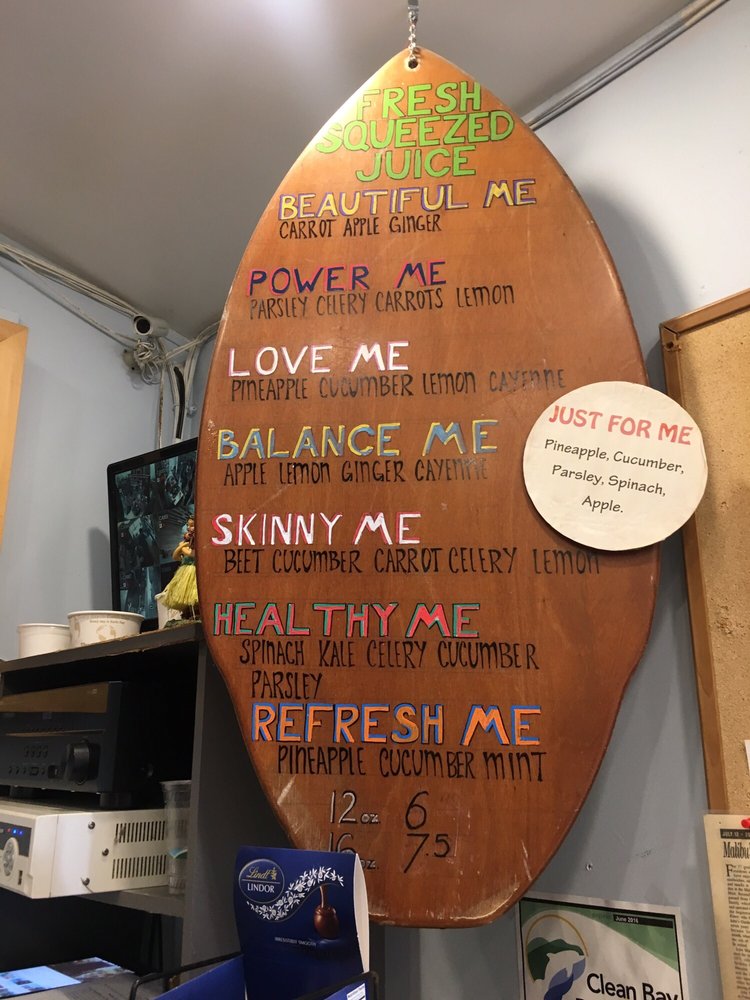 FRESH
SQUEEZED
JUICE
BEAUTIFUL ME
CARROT APPLE GINGER
POWER ME
PARSLEY CELERY CARROTS LEMON
LOVE ME
PINEAPPLE CUCUMBER LEMON CAYENNE
BALANCE ME
APPLE LEMON GINGER CAYENNE
SKINNY ME
BEET CUCUMBER CARROT CELERY LEMON
HEALTHY ME
SPINACH KALE CELERY CUCUMBER
PARSLEY
REFRESH ME
PINEAPPLE CUCUMBER MINT
12 oz 6
16 oz 7.5
JUST FOR ME
Pineapple, Cucumber,
Parsley, Spinach,
Apple.
Lindt
LINDOR
June 2016
Clean Bay
Malibu